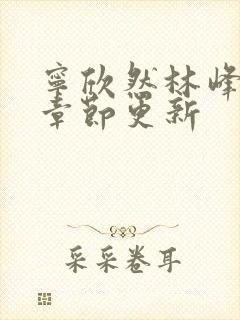 寧欣然林峰
章節更新
采采卷耳